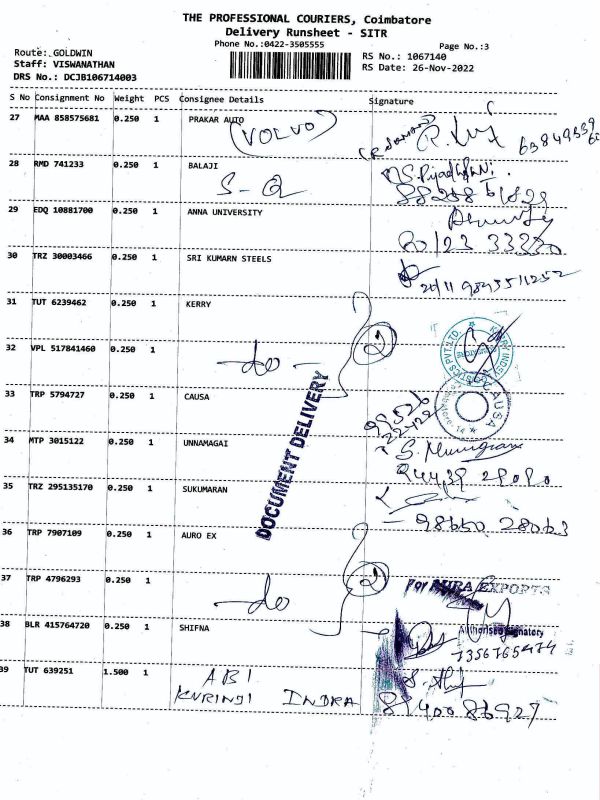 THE PROFESSIONAL COURIERS, Coimbatore
Delivery Runsheet - SITR
Phone No.:0422-3505555
Page No.:3
Route: GOLDWIN
Staff: VISWANATHAN
DRS No.: DCJB106714003
RS No.: 1067140
RS Date: 26-Nov-2022
S No Consignment No Weight PCS Consignee Details Signature
27 MAA 858575681 0.250 1 PRAKAR AUTO
(VOLVO)
28 RMD 741233 0.250 1 BALAJI
S-Q
29 EDQ 10881700 0.250 1 ANNA UNIVERSITY
30 TRZ 30003466 0.250 1 SRI KUMARN STEELS
31 TUT 6239462 0.250 1 KERRY
32 VPL 517841460 0.250 1
-do- 2
33 TRP 5794727 0.250 1 CAUSA
CAUSA
DOCUMENT DELIVERY
34 MTP 3015122 0.250 1 UNNAMAGAI
S. Murugan
35 TRZ 295135170 0.250 1 SUKUMARAN
98650 28063
36 TRP 7907109 0.250 1 AURO EX
37 TRP 4796293 0.250 1
-do 2
For AURA EXPORTS
Authorised Signatory
38 BLR 415764720 0.250 1 SHIFNA
7356765474
39 TUT 639251 1.500 1 ABI
KNRINJI INDRA